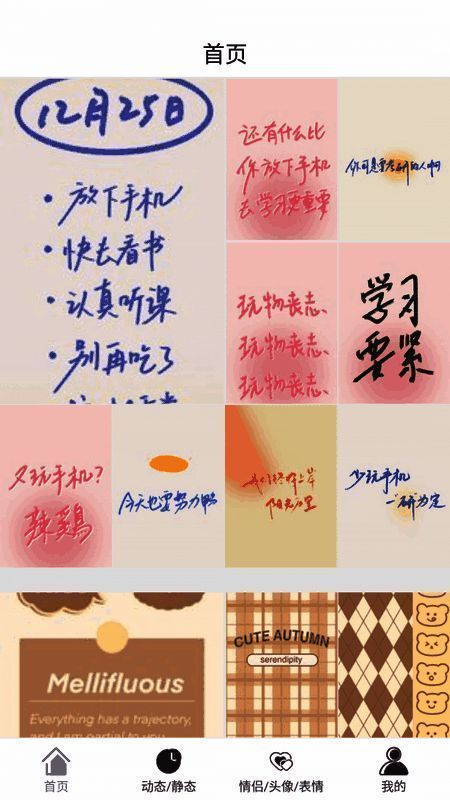 首页
12月25日
• 放下手机
• 快去看书
• 认真听课
• 别再吃了
还有什么比
你放下手机
去学习更重要
你可是要考研的人啊
玩物丧志、
玩物丧志、
玩物丧志、
学习
要紧
又玩手机?
辣鸡
今天也要努力鸭
我们终将上岸
阳光万里
少玩手机
一研为定
Mellifluous
Everything has a trajectory,
and I am partial to you
CUTE AUTUMN
serendipity
首页
动态/静态
情侣/头像/表情
我的